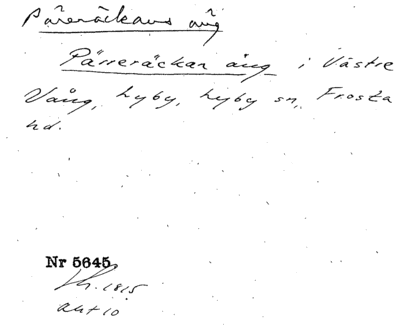 Päreräckans äng
Pärreräckan äng i Västre
Vång, Lyby, Lyby sn, Frosta
hd.
Nr 5645
1815
akt 10